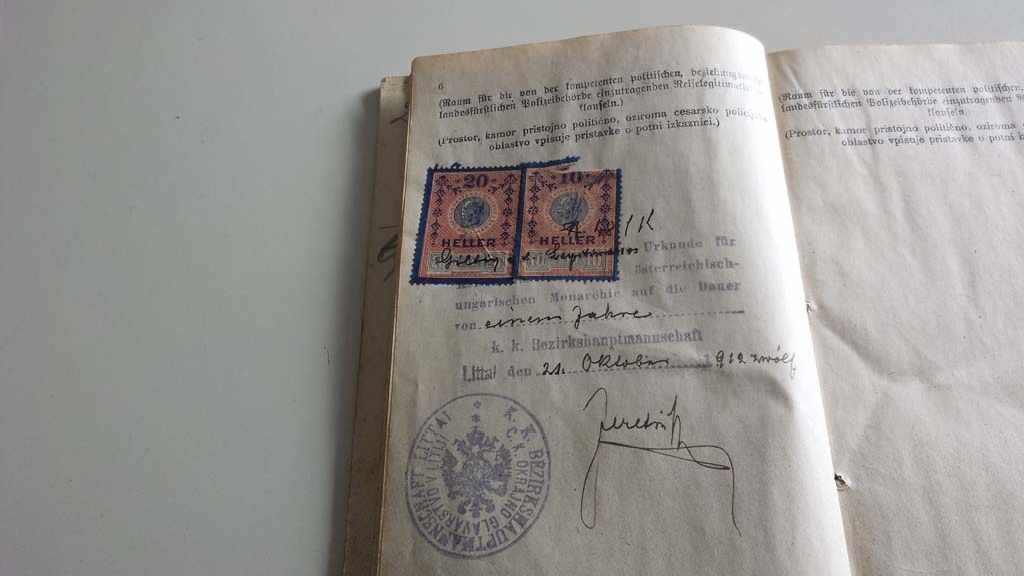 6
(Raum für die von der kompetenten politischen, beziehungsweise
landesfürstlichen Polizeibehörde einzutragenden Reiselegitimations-
klauseln.)
(Prostor, kamor pristojno politično, oziroma cesarsko policijsko
oblastvo vpisuje pristavke o potni izkaznici.)
20 HELLER
10 HELLER
Urkunde für
österreichisch-
ungarischen Monarchie auf die Dauer
von einem Jahre
k. k. Bezirkshauptmannschaft
Littai den 21. Oktober 1912 zwölf
K. K. BEZIRKSHAUPTMANNSCHAFT LITTAI
C. K. OKRAJNO GLAVARSTVO
(Raum für die von der kompetenten politischen,
landesfürstlichen Polizeibehörde einzutragenden
klauseln.)
(Prostor, kamor pristojno politično, oziroma
oblastvo vpisuje pristavke o potni